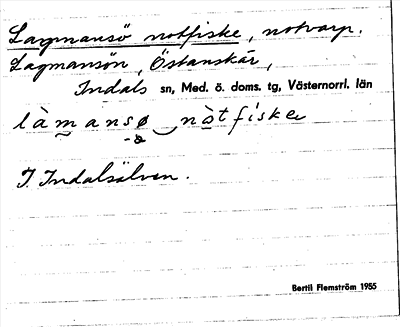 Lagmansö notfiske, notvarp.
Lagmansön, Östanskär,
Indals sn, Med. ö. doms. tg, Västernorrl. län
làmansø‿nòtfiske
-a
I Indalsälven.
Bertil Flemström 1955